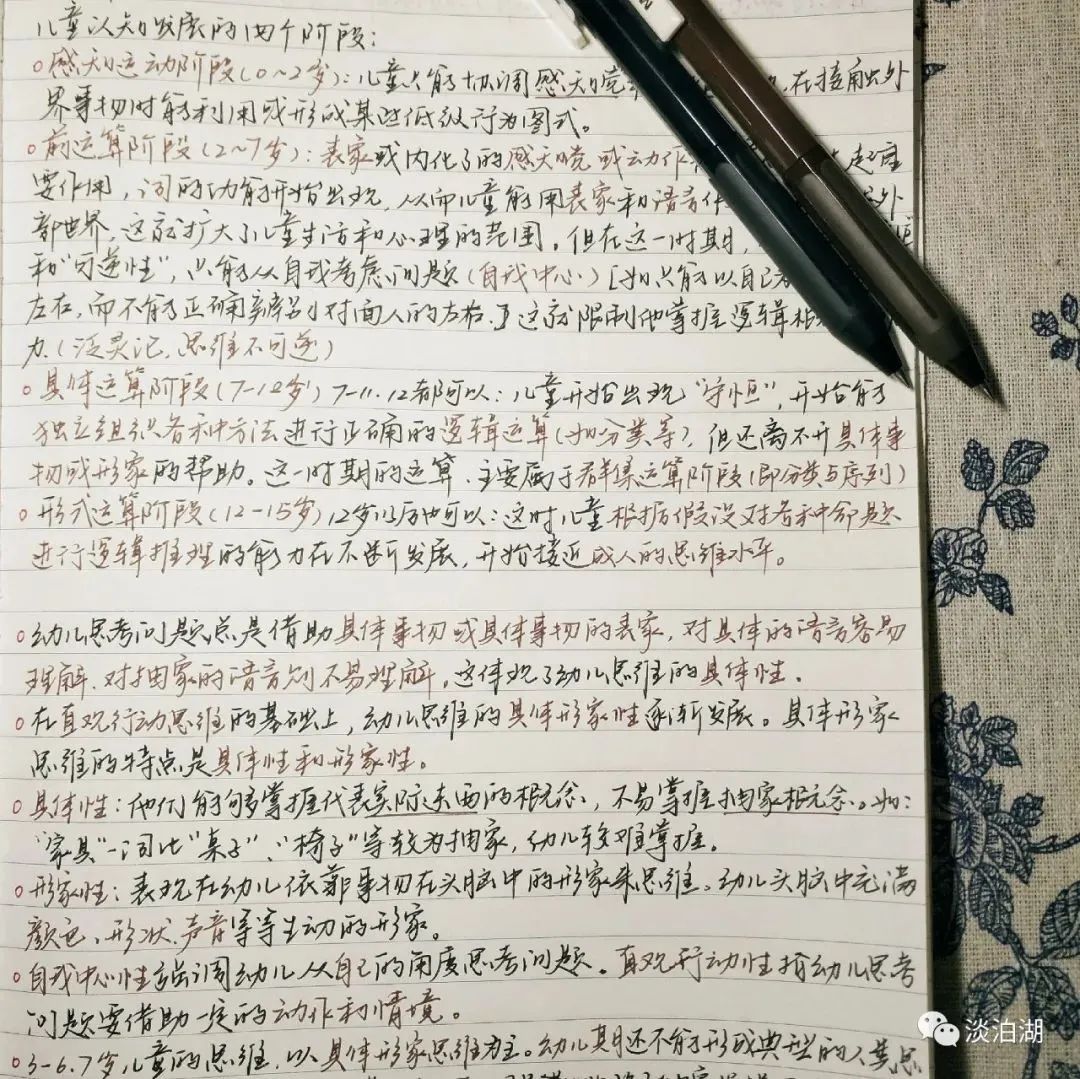 儿童认知发展的四个阶段：
○感知运动阶段（0~2岁）：儿童只能协调感知觉 在接触外
界事物时能利用或形成某些低级行为图式。
○前运算阶段（2~7岁）：表象或内化了的感知觉或动作 起重
要作用，词的功能开始出现，从而儿童能用表象和语言 外
部世界，这就扩大了儿童生活和心理的范围。但在这一时期，
和“可逆性”，只能从自我考虑问题（自我中心）[如只能以自己
左右，而不能正确辨别对面人的左右。]这就限制他掌握逻辑
力。（泛灵论，思维不可逆）
○具体运算阶段（7-12岁）7-11.12都可以：儿童开始出现“守恒”，开始能
独立组织各种方法进行正确的逻辑运算（如分类等），但还离不开具体事
物或形象的帮助。这一时期的运算，主要属于群集运算阶段（即分类与序列）
○形式运算阶段（12-15岁）12岁以后也可以：这时儿童根据假设对各种命题
进行逻辑推理的能力在不断发展，开始接近成人的思维水平。
○幼儿思考问题总是借助具体事物或具体事物的表象，对具体的语言容易
理解，对抽象的语言则不易理解，这体现了幼儿思维的具体性。
○在直观行动思维的基础上，幼儿思维的具体形象性逐渐发展。具体形象
思维的特点是具体性和形象性。
○具体性：他们能够掌握代表实际东西的概念，不易掌握抽象概念。如：
“家具”一词比“桌子”、“椅子”等较为抽象，幼儿较难掌握。
○形象性：表现在幼儿依靠事物在头脑中的形象来思维。幼儿头脑中充满
颜色、形状、声音等等生动的形象。
○自我中心性强调幼儿从自己的角度思考问题。直观行动性指幼儿思考
问题要借助一定的动作和情境。
○3-6.7岁儿童的思维，以具体形象思维为主。幼儿期还不能形成典型的人类思
淡泊湖